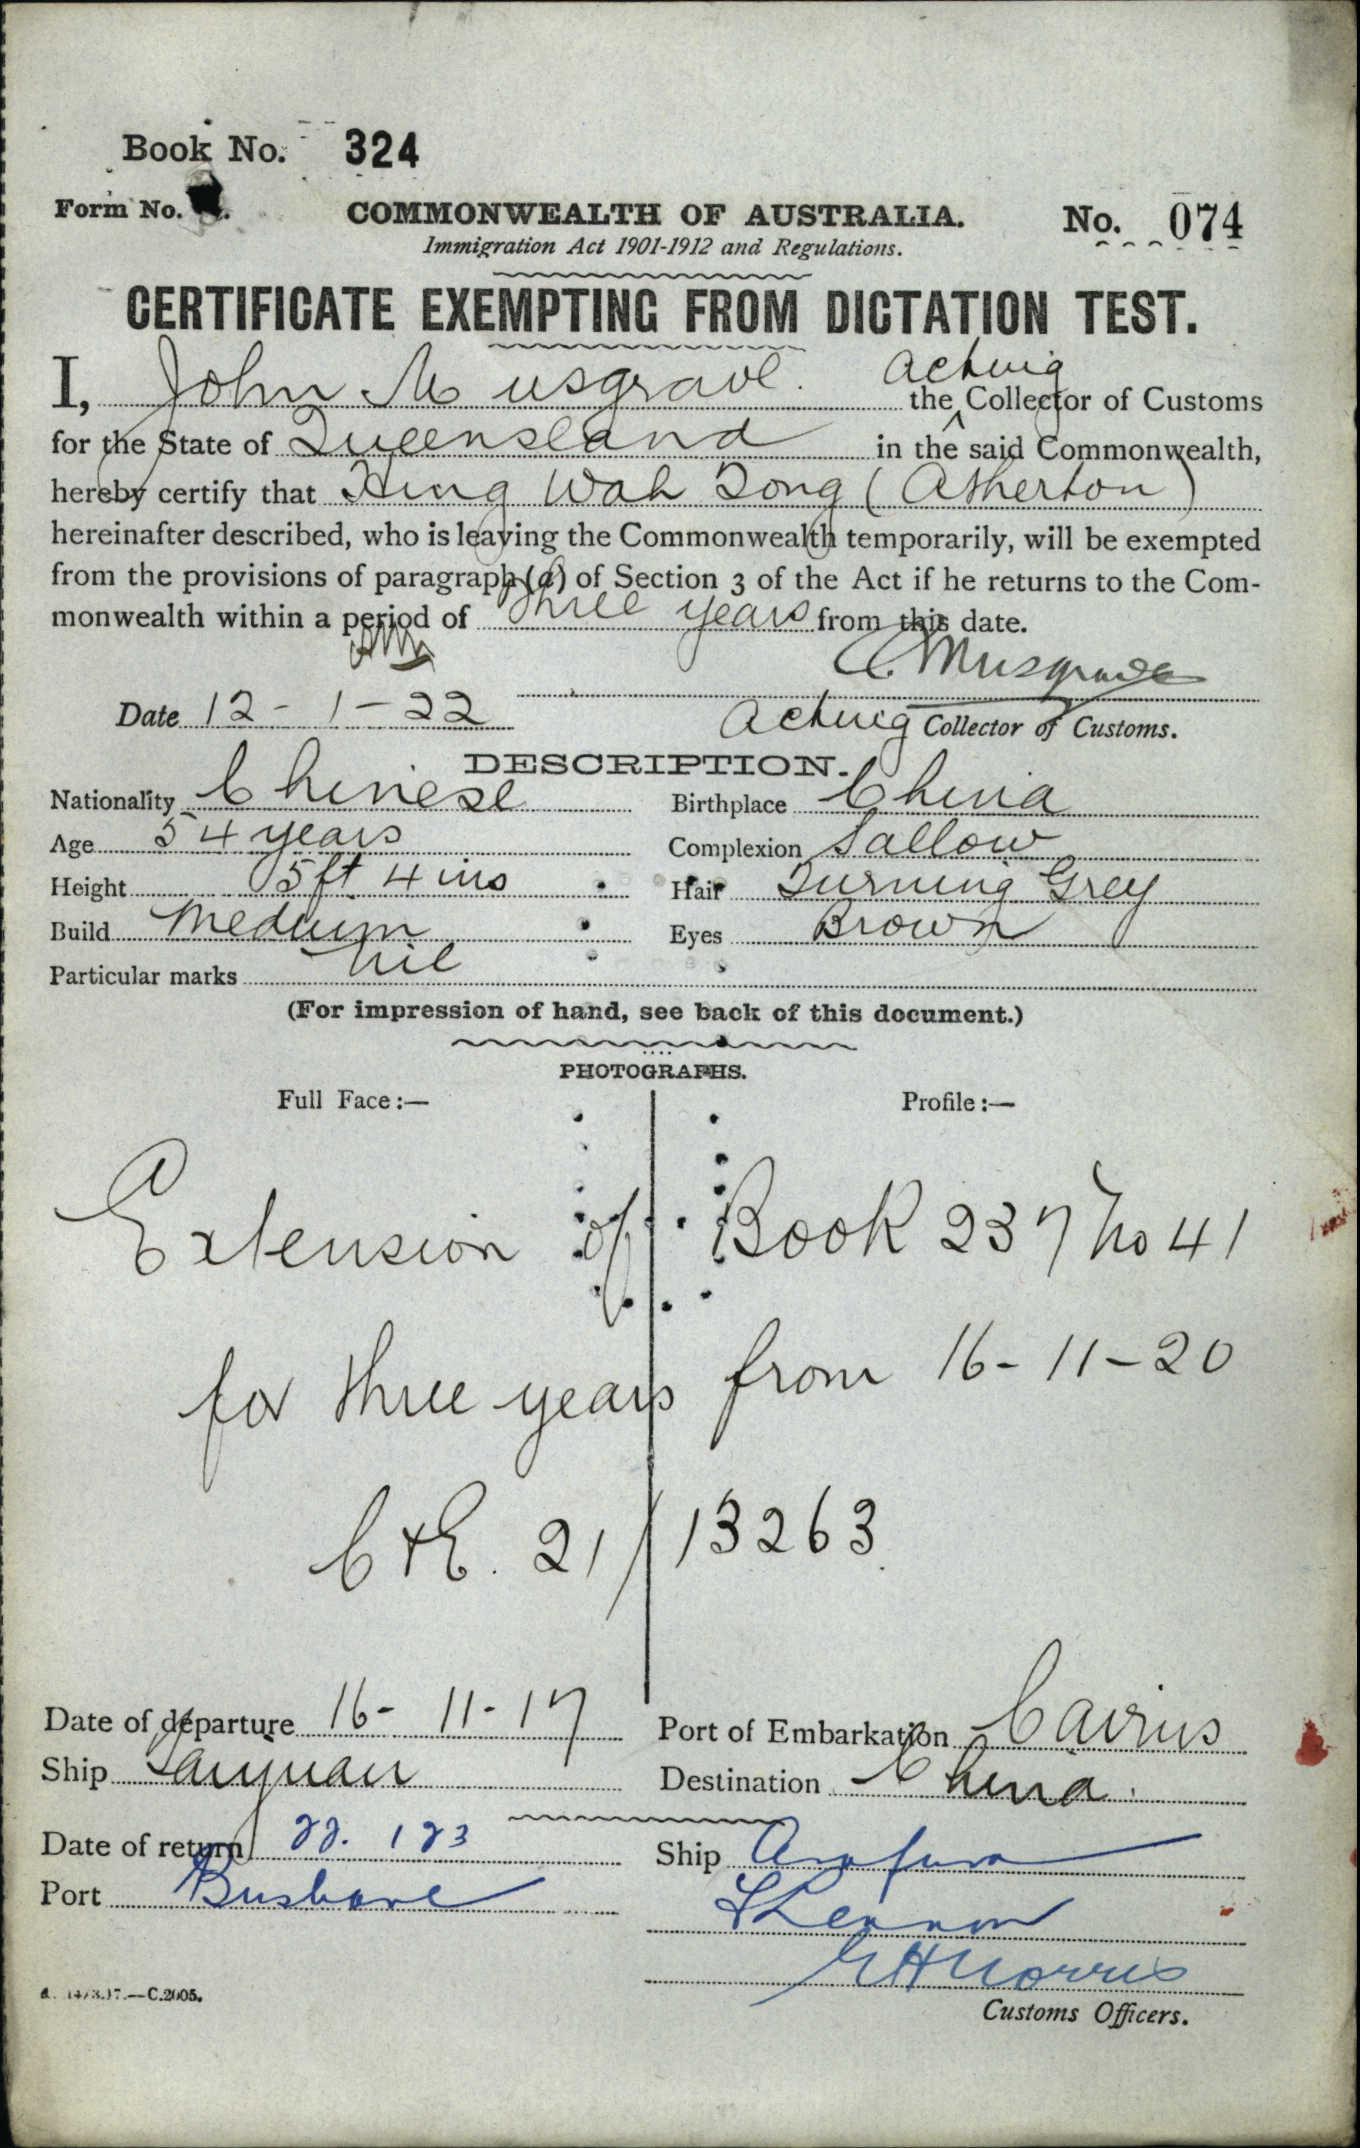 Book No. 324
Form No.
COMMONWEALTH OF AUSTRALIA.
No. 074
Immigration Act 1901-1912 and Regulations.
CERTIFICATE EXEMPTING FROM DICTATION TEST.
I, John Musgrave. the ^ Acting Collector of Customs
for the State of Queensland in the said Commonwealth,
hereby certify that Hing Wah Tong (Atherton)
hereinafter described, who is leaving the Commonwealth temporarily, will be exempted
from the provisions of paragraph (a) of Section 3 of the Act if he returns to the Com-
monwealth within a period of three years from this date.
Musgrave
Date 12-1-22 Acting Collector of Customs.
DESCRIPTION.
Nationality Chinese Birthplace China
Age 54 years Complexion Sallow
Height 5ft 4 ins Hair Turning Grey
Build Medium Eyes Brown
Particular marks nil
(For impression of hand, see back of this document.)
PHOTOGRAPHS.
Full Face:— Profile:—
Extension of Book 237 No 41
for three years from 16-11-20
C & E. 21/13263
Date of departure 16-11-17 Port of Embarkation Cairns
Ship Taiyuan Destination China.
Date of return 22.1 23 Ship Arafura
Port Brisbane
GH Norris
Customs Officers.
C.2005.